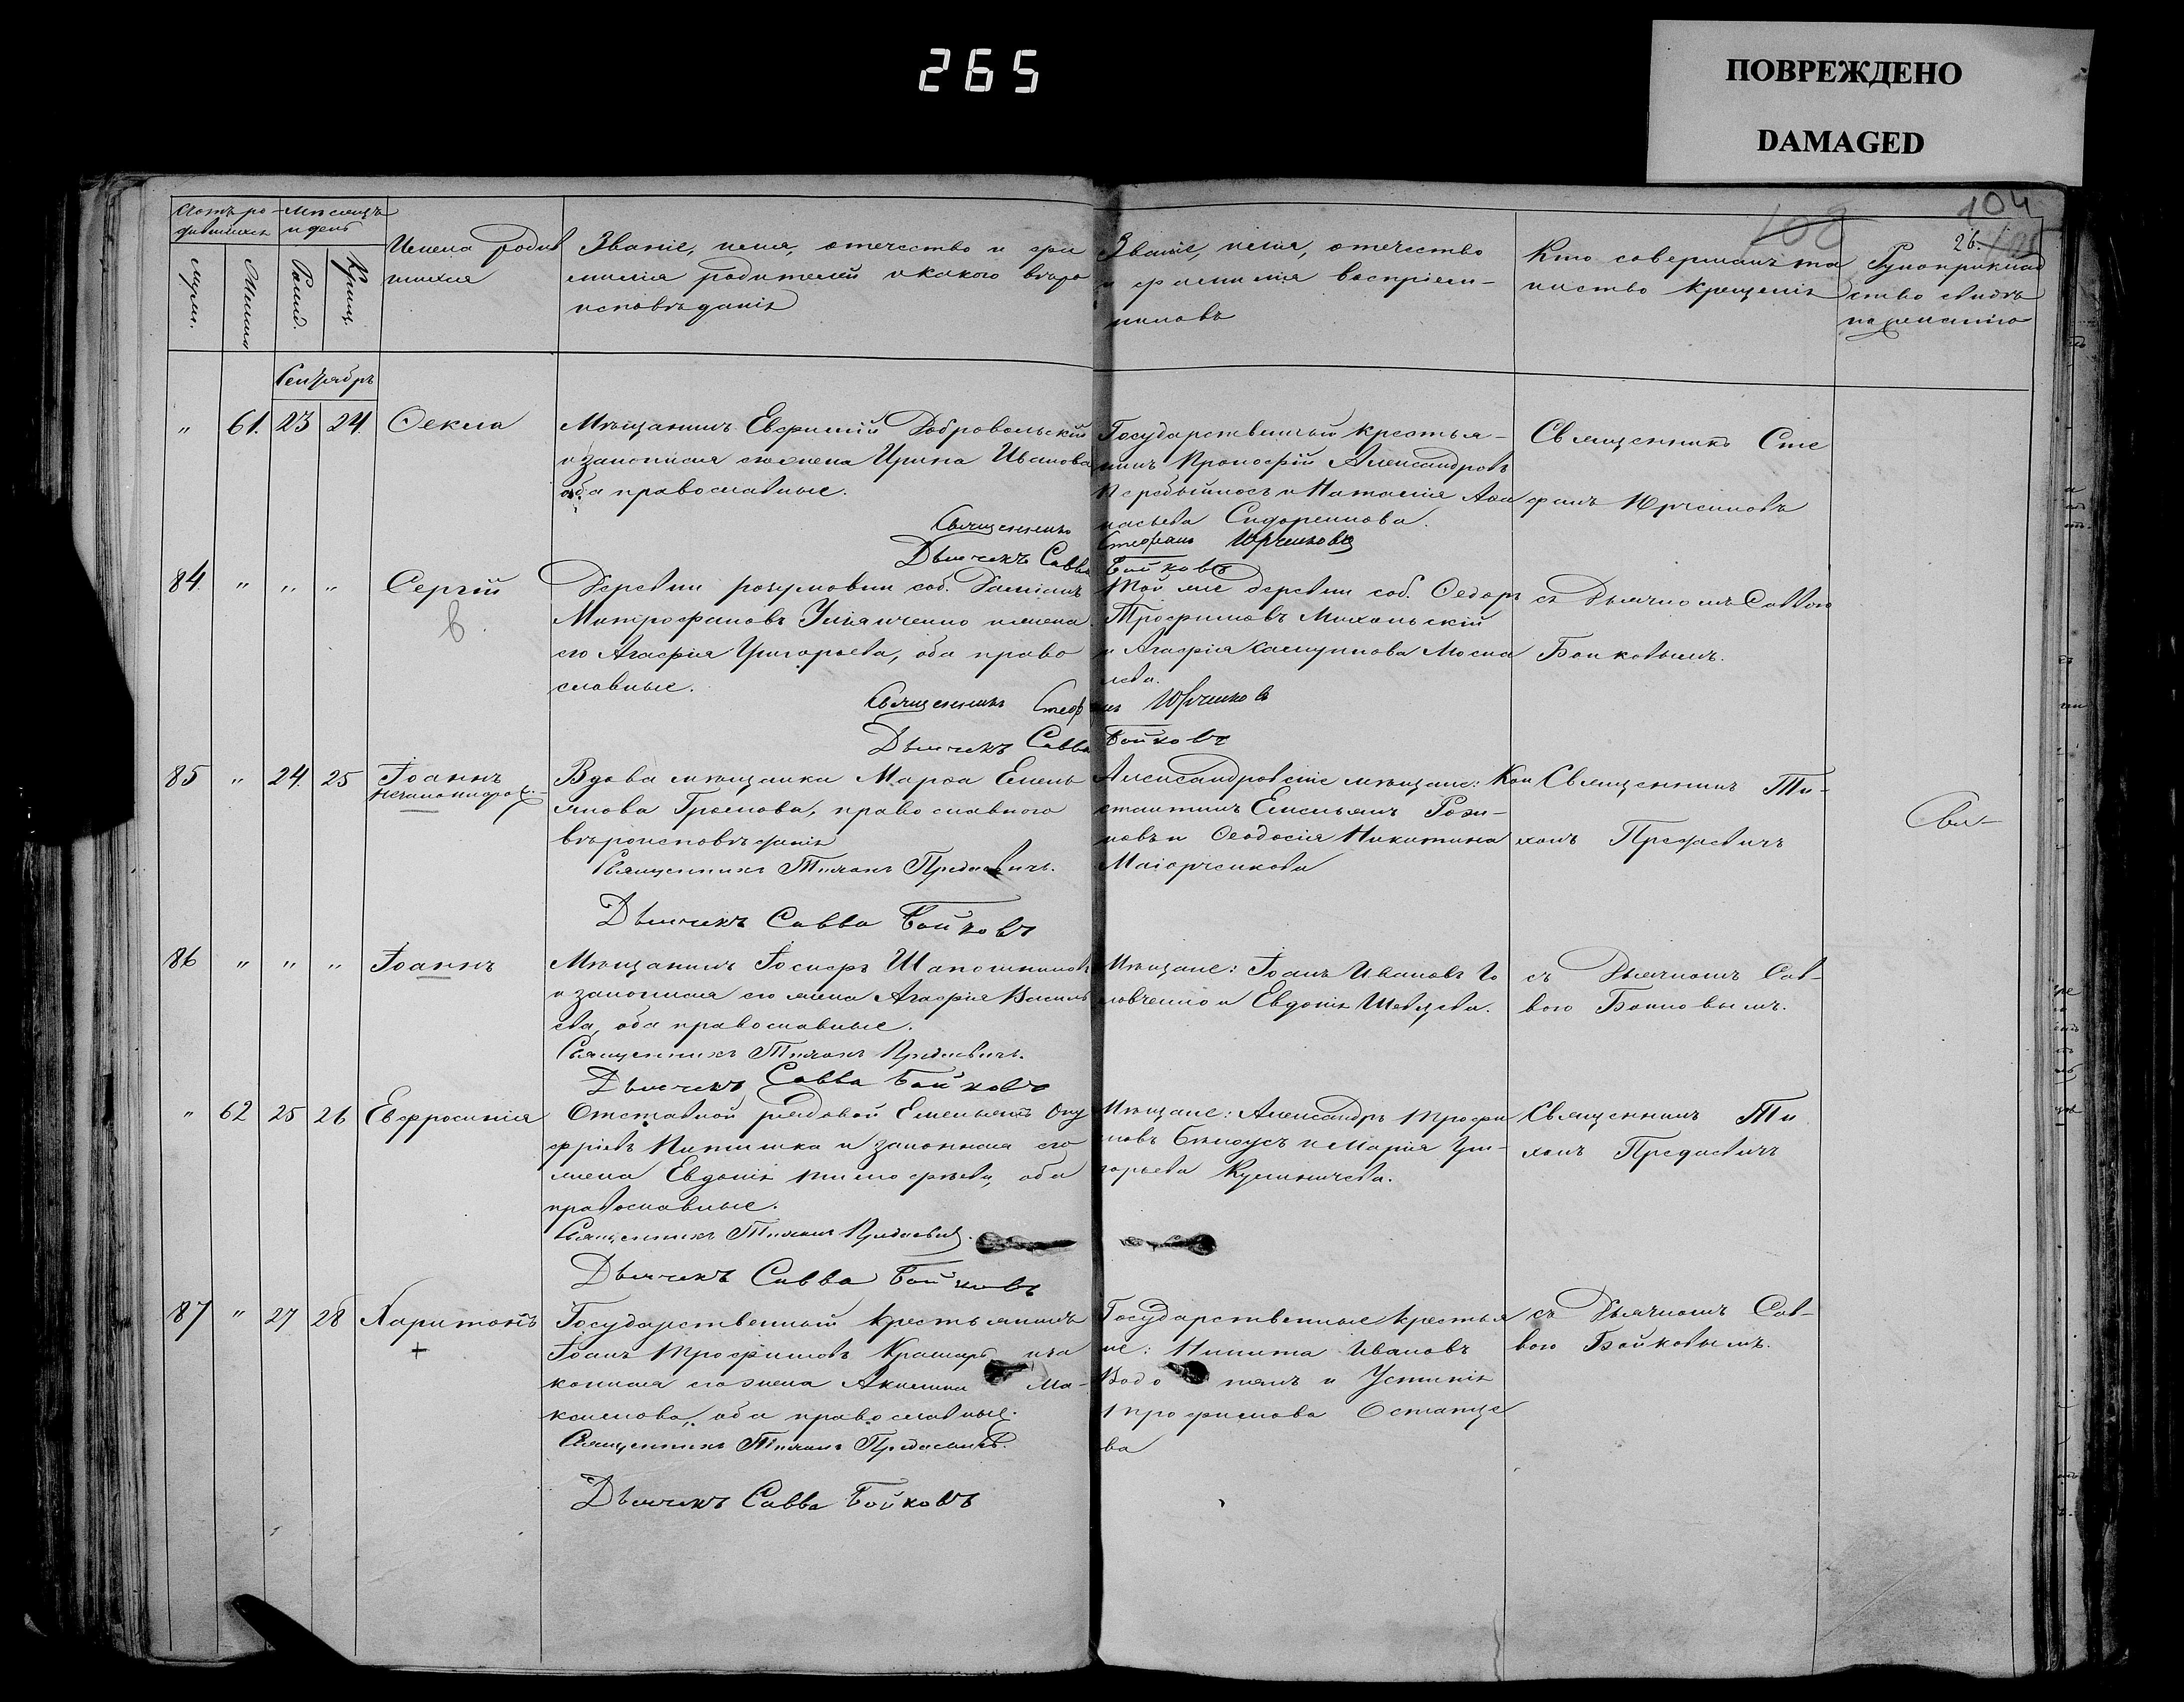 265
ПОВРЕЖДЕНО
DAMAGED
104
108
26.
Счетъ ро-
дившихся
Мѣсяцъ
и день
Имена родив
шихся
Званіе, имя, отечество и фа
милія родителей и какого вѣро
исповѣданія
Званіе, имя, отечество
и фамилія воспріем-
никовъ
Кто совершалъ та
инство крещенія
Рукоприклад
ство свидѣ
по желанію
Сентябрь
„ 61. 23 24. Ѳекла
Мѣщанинъ Евфимій Добровольскій
и законная его жена Ирина Иванова
оба православные.
Священникъ Стефанъ Юрченковъ
Дьячекъ Савва Бойковъ
Государственный крестья-
нинъ Прокофій Александровъ
и Наталія
Сидоренкова.
Священникъ Сте
фанъ Юрченковъ
84. „ „ „ Сергій
в.
Деревни соб. Даміанъ
Митрофановъ жена
его Агафія Григорьева, оба право
славные.
Священникъ Стефанъ Юрченковъ
Дьячекъ Савва Бойковъ
Той же деревни соб. Ѳедоръ
Трофимовъ
и Агафія
съ Дьячкомъ Саввою
Бойковымъ.
85 „ 24. 25 Іоаннъ
незаконнорож.
Вдова мѣщанка Марѳа Емель
янова Громова, православного
вѣроисповѣданія
Священникъ Тихонъ Предаевичъ.
Дьячекъ Савва Бойковъ
Александровскіе мѣщане: Кон
стантинъ Емельянъ
новъ и Ѳеодосія Никитина
Маіорченкова
Священникъ Ти-
хонъ Предаевичъ
86 „ „ „ Іоаннъ
Мѣщанинъ Іосифъ Шапошниковъ
и законная его жена Агафія Василь
ева, оба православные.
Священникъ Тихонъ Предаевичъ.
Дьячекъ Савва Бойковъ
Мѣщане: Іоанъ Ивановъ Го
ловченко и Евдокія Шевцева.
съ Дьячкомъ Сав-
вою Бойковымъ.
„ 62 25 26 Евфросинія
Отставной рядовой Емельянъ Ону
фріевъ и законная его
жена Евдокія Тимофѣева, оба
православные.
Священникъ Тихонъ Предаевичъ.
Дьячекъ Савва Бойковъ
Мѣщане: Александръ Трофи
мовъ Бѣлоусъ и Марія Гри-
горьева
Священникъ Ти
хонъ Предаевичъ
87 „ 27 28 Харитонъ
+
Государственный крестьянинъ
Іоанъ Трофимовъ и за
конная его жена Акилина
оба православные.
Священникъ Тихонъ Предаевичъ.
Дьячекъ Савва Бойковъ
Государственные крестья
не: Никита Ивановъ
и Устинія
Трофимова Остапце
ва
съ Дьячкомъ Сав-
вою Бойковымъ.